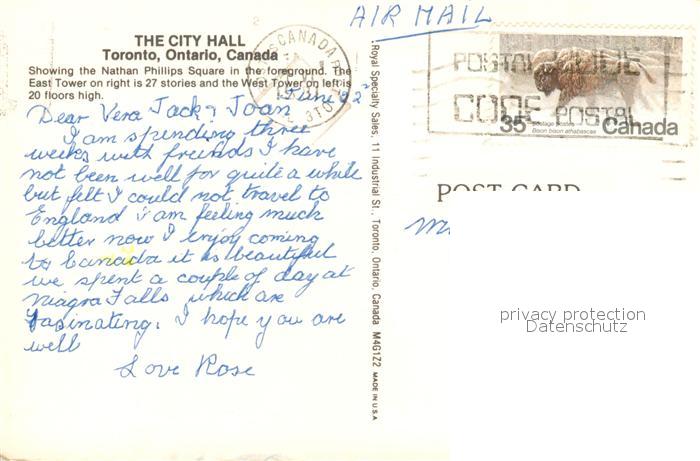 THE CITY HALL
Toronto, Ontario, Canada
Showing the Nathan Phillips Square in the foreground. The
East Tower on right is 27 stories and the West Tower on left is
20 floors high.
June
Dear Vera Jack & Joan
I am spending three
weeks with freinds I have
not been well for quite a while
but felt I could not travel to
England I am feeling much
better now I enjoy coming
to Canada it is beautiful
we spent a couple of day at
Niagra Falls which are
fasinating. I hope you are
well
Love Rose
Royal Specialty Sales, 11 Industrial St., Toronto, Ontario, Canada M4G1Z2 MADE IN U.S.A
AIR MAIL
CANADA
POSTAL CODE
CODE POSTAL
35
postage postes
Bison bison athabascae
Canada
POST CARD
privacy protection
Datenschutz